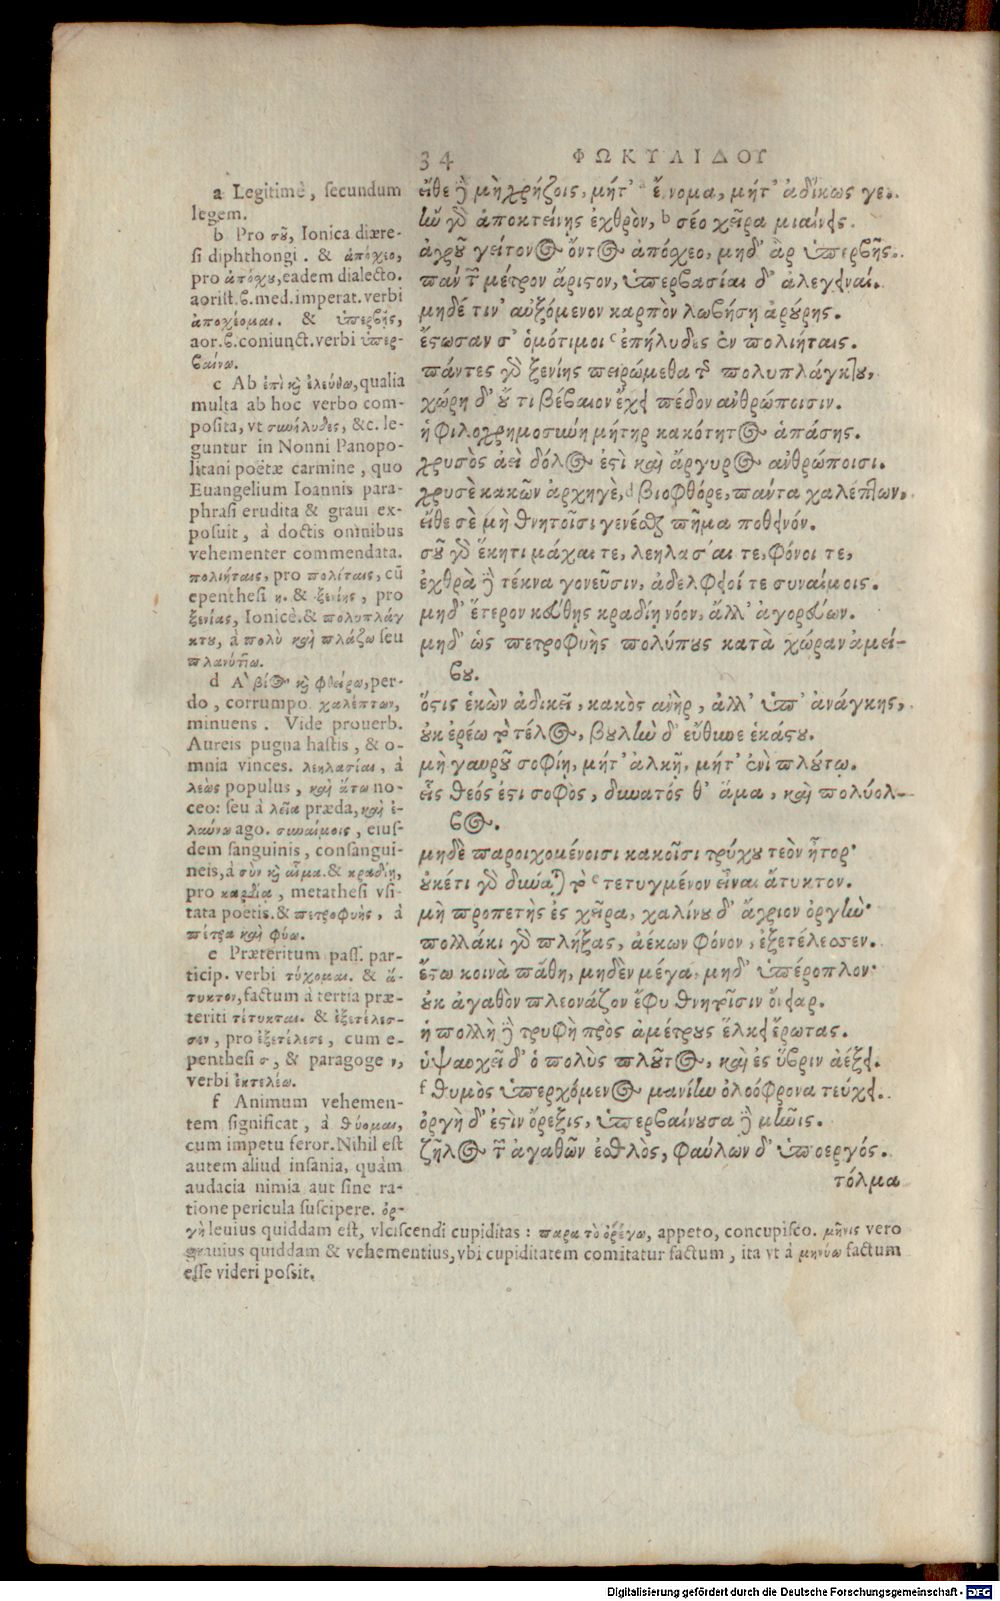 34 ΦΩΚΥΛΙΔΟΥ
εἴθε δὲ μὴ χρήζοις, μήτ' ἔννομα, μήτ' ἀδίκως
ἢν γὰρ ἀποκτείνῃς ἐχθρὸν, b σέο χεῖρα μιαίνεις.
ἀγροῦ γείτονος ὄντος ἀπόχεο, μηδ' ἂρ ὑπερβῇς.
πάντων μέτρον ἄριστον, ὑπερβασίαι δ' ἀλεγειναί.
μηδέ τιν' αὐξόμενον καρπὸν λωβήσῃ ἀρούρης.
ἔστωσαν δ' ὁμότιμοι c ἐπήλυδες ἐν πολιήταις.
πάντες γὰρ ξενίης πειρώμεθα τῆς πολυπλάγκτου,
χώρη δ' οὔ τι βέβαιον ἔχει πέδον ἀνθρώποισιν.
ἡ φιλοχρημοσύνη μήτηρ κακότητος ἁπάσης.
χρυσὸς ἀεὶ δόλος ἐστὶ καὶ ἄργυρος ἀνθρώποισι.
χρυσὲ κακῶν ἀρχηγὲ, d βιοφθόρε, πάντα χαλέπτων,
εἴθε σὲ μὴ θνητοῖσι γενέσθαι πῆμα ποθεινόν.
σοῦ γὰρ ἕκητι μάχαι τε, λεηλασίαι τε, φόνοι τε,
ἐχθρὰ δὲ τέκνα γονεῦσιν, ἀδελφειοί τε συναίμοις.
μηδ' ἕτερον κεύθης κραδίῃ νόον, ἄλλ' ἀγορεύων.
μηδ' ὡς πετροφυὴς πολύπους κατὰ χώραν ἀμεί-
βου.
ὅστις ἑκὼν ἀδικεῖ, κακὸς ἀνὴρ, ἀλλ' ὑπ' ἀνάγκης,
οὐκ ἐρέω τὸ τέλος, βουλὴν δ' εὔθυνε ἑκάστου.
μὴ γαυροῦ σοφίῃ, μήτ' ἀλκῇ, μήτ' ἐνὶ πλούτῳ.
εἷς θεός ἐστι σοφὸς, δυνατός θ' ἅμα, καὶ πολύολ-
βος.
μηδὲ παροιχομένοισι κακοῖσι τρύχου τεὸν ἦτορ·
οὐκέτι γὰρ δύναται τὸ e τετυγμένον εἶναι ἄτυκτον.
μὴ προπετὴς ἐς χεῖρα, χαλίνου δ' ἄγριον ὀργήν·
πολλάκι γὰρ πλήξας, ἀέκων φόνον, ἐξετέλεσσεν.
ἔστω κοινὰ πάθη, μηδὲν μέγα, μηδ' ὑπέροπλον·
οὐκ ἀγαθὸν πλεονάζον ἔφυ θνητοῖσιν ὄνειαρ.
ἡ πολλὴ δὲ τρυφὴ πρὸς ἀμέτρους ἕλκει ἔρωτας.
ὑψαυχεῖ δ' ὁ πολὺς πλοῦτος, καὶ ἐς ὕβριν ἀέξει.
f θυμὸς ὑπερχόμενος μανίην ὀλοόφρονα τεύχει.
ὀργὴ δ' ἐστὶν ὄρεξις, ὑπερβαίνουσα δὲ μῆνις.
ζῆλος τῶν ἀγαθῶν ἐσθλὸς, φαύλων δ' ὑποεργός.
τόλμα
a Legitimè, secundum
legem.
b Pro σοῦ, Ionica diære-
si diphthongi. & ἀπόχεο,
pro ἀπόχου, eadem dialecto.
aorist.β.med.imperat.verbi
ἀποχέομαι. & ὑπερβῇς,
aor.β.coniunct.verbi ὑπερ-
βαίνω.
c Ab ἐπὶ καὶ ἐλεύθω, qualia
multa ab hoc verbo com-
posita, vt συνήλυδες, &c. le-
guntur in Nonni Panopo-
litani poëtæ carmine, quo
Euangelium Ioannis para-
phrasi erudita & graui ex-
posuit, à doctis omnibus
vehementer commendata.
πολιήταις, pro πολίταις, cū
epenthesi η. & ξενίης, pro
ξενίας, Ionicè. & πολυπλάγ
κτου, à πολὺ καὶ πλάζω seu
πλανύττω.
d A βίος καὶ φθείρω, per-
do, corrumpo. χαλέπτων,
minuens. Vide prouerb.
Aureis pugna hastis, & o-
mnia vinces. λεηλασίαι, à
λεὼς populus, καὶ ἄτω no-
ceo: seu à λεῖα præda, καὶ ἐ-
λαύνω ago. συναίμοις, eius-
dem sanguinis, consangui-
neis, à σὺν καὶ αἷμα. & κραδίη,
pro καρδία, metathesi vsi-
tata poëtis. & πετροφυὴς, à
πέτρα καὶ φύω.
e Præteritum pass. par-
ticip. verbi τύχομαι. & ἄ-
τυκτον, factum à tertia præ-
teriti τέτυκται. & ἐξετέλεσ-
σεν, pro ἐξετέλεσε, cum e-
penthesi σ, & paragoge ν,
verbi ἐκτελέω.
f Animum vehemen-
tem significat, à θύομαι,
cum impetu feror. Nihil est
autem aliud insania, quàm
audacia nimia aut sine ra-
tione pericula suscipere. ὀρ-
γὴ leuius quiddam est, vlciscendi cupiditas: παρὰ τὸ ὀρέγω, appeto, concupisco. μῆνις vero
grauius quiddam & vehementius, vbi cupiditatem comitatur factum, ita vt à μηνύω factum
esse videri possit.
Digitalisierung gefördert durch die Deutsche Forschungsgemeinschaft - DFG